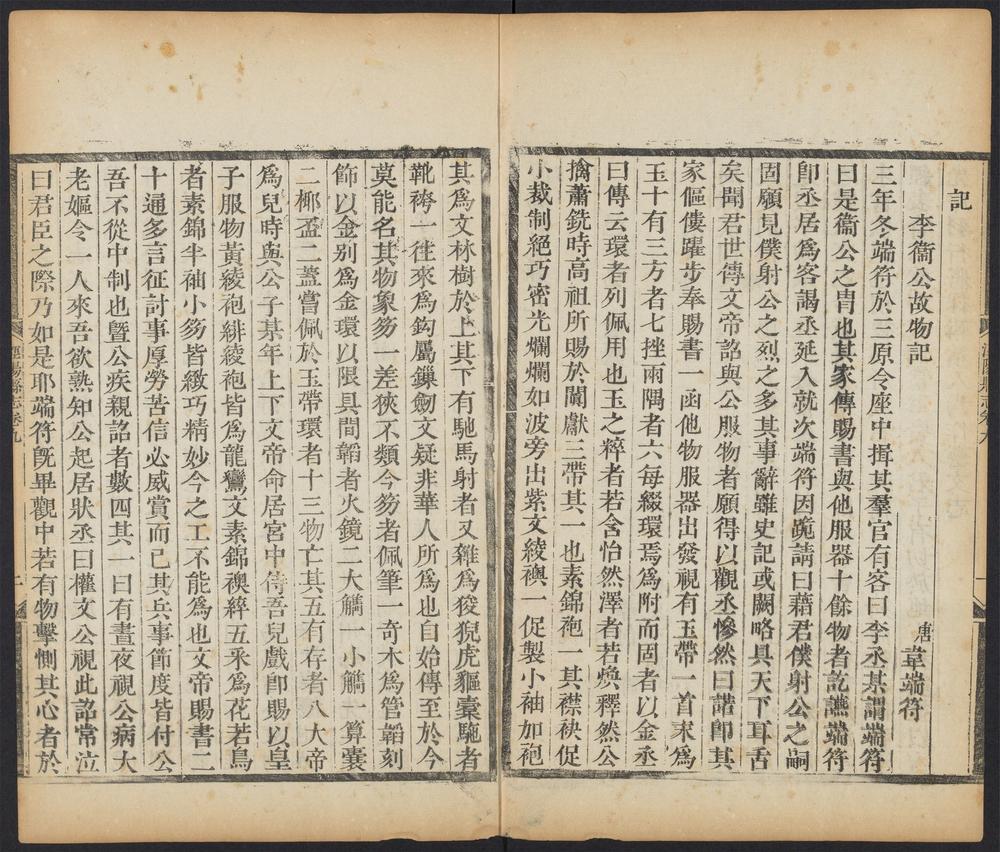 記
李衞公故物記
唐 韋端符
三年冬端符於三原令座中揖其羣官有客曰李丞某謂端符
曰是衞公之胄也其家傳賜書與他服器十餘物者訖讌端符
卽丞居爲客謁丞延入就次端符因跪請曰藉君僕射公之嗣
固願見僕射公之烈之多其事辭雖史記或闕略具天下耳舌
矣聞君世傳文帝詔與公服物者願得以觀丞慘然曰諾卽其
家傴僂躍步奉賜書一函他物服器出發視有玉帶一首末爲
玉十有三方者七挫兩隅者六每綴環焉爲附而固者以金丞
曰傳云環者列佩用也玉之粹者若含怡然澤者若煥釋然公
擒蕭銑時高祖所賜於闐獻三帶其一也素錦袍一其襟袂促
小裁制絕巧密光爛爛如波旁出紫文綾襖一促製小袖加袍
其爲文林樹於上其下有馳馬射者又雜爲狻猊虎貙橐駞者
靴袴一往來爲鈎屬鏁劒文疑非華人所爲也自始傳至於今
莫能名其物象笏一差狹不類今笏者佩筆一奇木爲管韜刻
飾以金别爲金環以限具間韜者火鏡二大觹一小觹一算囊
二椰盃二蓋嘗佩於玉帶環者十三物亡其五有存者八大帝
爲兒時與公子某年上下文帝命居宮中侍吾兒戲卽賜以皇
子服物黃綾袍緋綾袍皆爲龍鸞文素錦襖綷五釆爲花若鳥
者素錦半袖小笏皆緻巧精妙今之工不能爲也文帝賜書二
十通多言征討事厚勞苦信必威賞而已其兵事節度皆付公
吾不從中制也曁公疾親詔者數四其一曰有晝夜視公病大
老嫗令一人來吾欲熟知公起居狀丞曰權文公視此詔常泣
曰君臣之際乃如是耶端符旣畢觀中若有物擊惻其心者於
涇陽縣志卷九
二